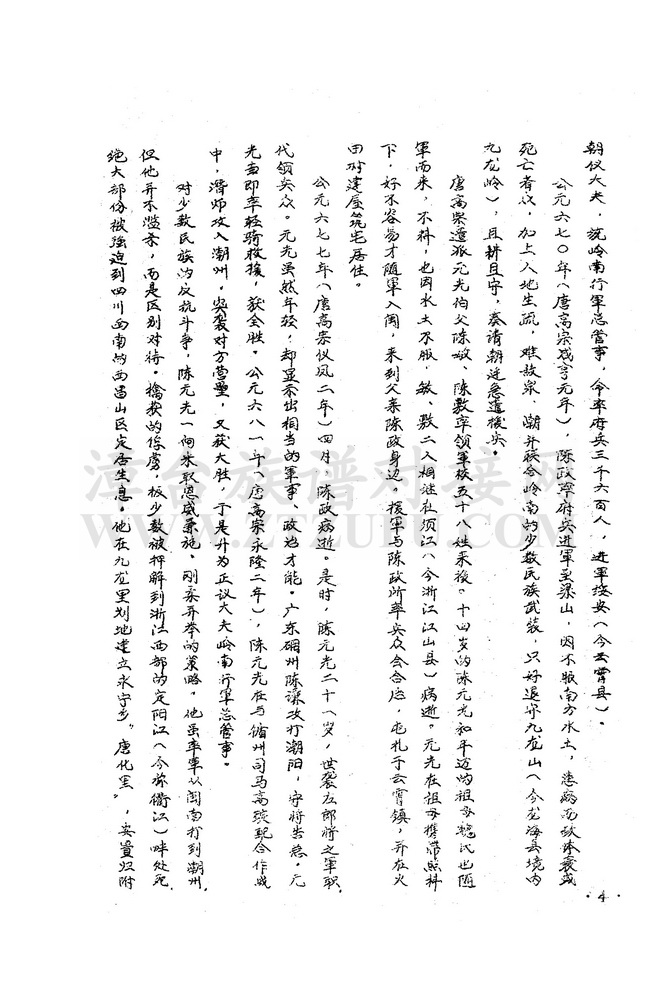 朝仪大夫，统岭南行军总管事，令率府兵三千六百人，进军绥安（今云霄县）。
公元六七〇年（唐高宗咸亨元年），陈政率府兵进军至梁山，因不服南方水土，患病而致体衰或
死亡者众，加上人地生疏，难敌泉、潮并联合岭南的少数民族武装，只好退守九龙山（今龙海县境内
九龙岭），且耕且守，奏请朝廷急遣援兵。
唐高宗遣派元光伯父陈敏、陈敷率领军校五十八姓来援。十四岁的陈元光和年迈的祖母魏氏也随
军而来，不料，也因水土不服，敏、敷二人相继在须江（今浙江江山县）病逝。元光在祖母携带照料
下，好不容易才随军入闽，来到父亲陈政身边。援军与陈政所率兵众会合后，屯扎于云霄镇，并在火
田村建屋筑宅居住。
公元六七七年（唐高宗仪凤二年）四月，陈政病逝。是时，陈元光二十一岁，世袭左郎将之军职，
代领兵众。元光虽然年轻，却显示出相当的军事、政治才能。广东碙州陈谦攻打潮阳，守将告急。元
光当即率轻骑救援，获全胜。公元六八一年（唐高宗永隆二年），陈元光在与循州司马高琔配合作战
中，潜师攻入潮州。突袭对方营垒，又获大胜，于是升为正议大夫岭南行军总管事。
对少数民族的反抗斗争，陈元光一向采取恩威兼施。刚柔并举的策略。他虽率军从闽南打到潮州，
但他并不滥杀，而是区别对待。擒获的俘虏，极少数被押解到浙江西部的定阳江（今称衢江）畔处死，
绝大部份被强迫到四川西南的西昌山区定居生息。他在九龙里划地建立永宁乡"唐化里"，安置归附
·4·
漳台族谱对接网
WWW.ZTZUPU.COM